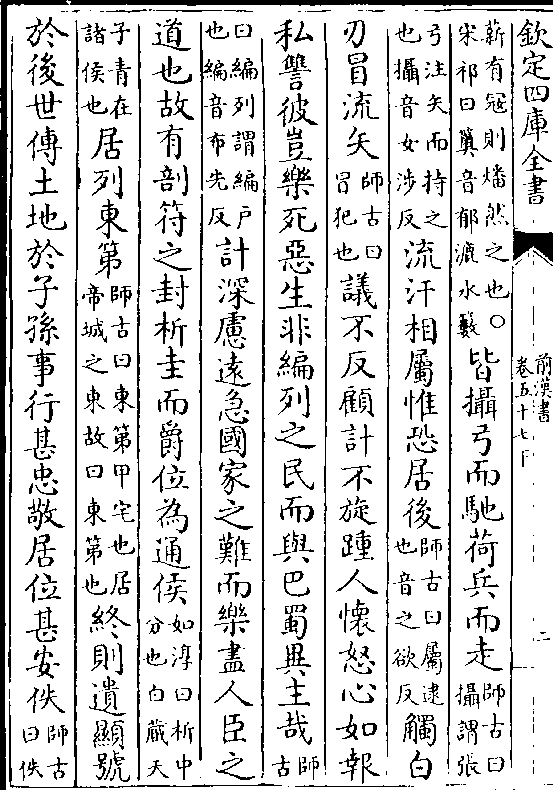 欽定四庫全書
前漢書
卷五十七下
二
薪有冦則燔然之也○
宋祁曰䉛音郁漉水籔
皆攝弓而馳荷兵而走
師古曰
攝謂張
弓注矢而持之
也攝音女涉反
流汗相屬惟恐居後
師古曰屬逮
也音之欲反
觸白
刃冒流矢
師古曰
冒犯也
議不反顧計不旋踵人懷怒心如報
私讐彼豈樂死惡生非編列之民而與巴蜀異主哉
師
古
曰編列謂編戶
也編音布先反
計深慮遠急國家之難而樂盡人臣之
道也故有剖符之封析圭而爵位為通侯
如淳曰析中
分也白藏天
子青在
諸侯也
居列東第
師古曰東第甲宅也居
帝城之東故曰東第也
終則遺顯號
於後世傳土地於子孫事行甚忠敬居位甚安佚
師古
曰佚